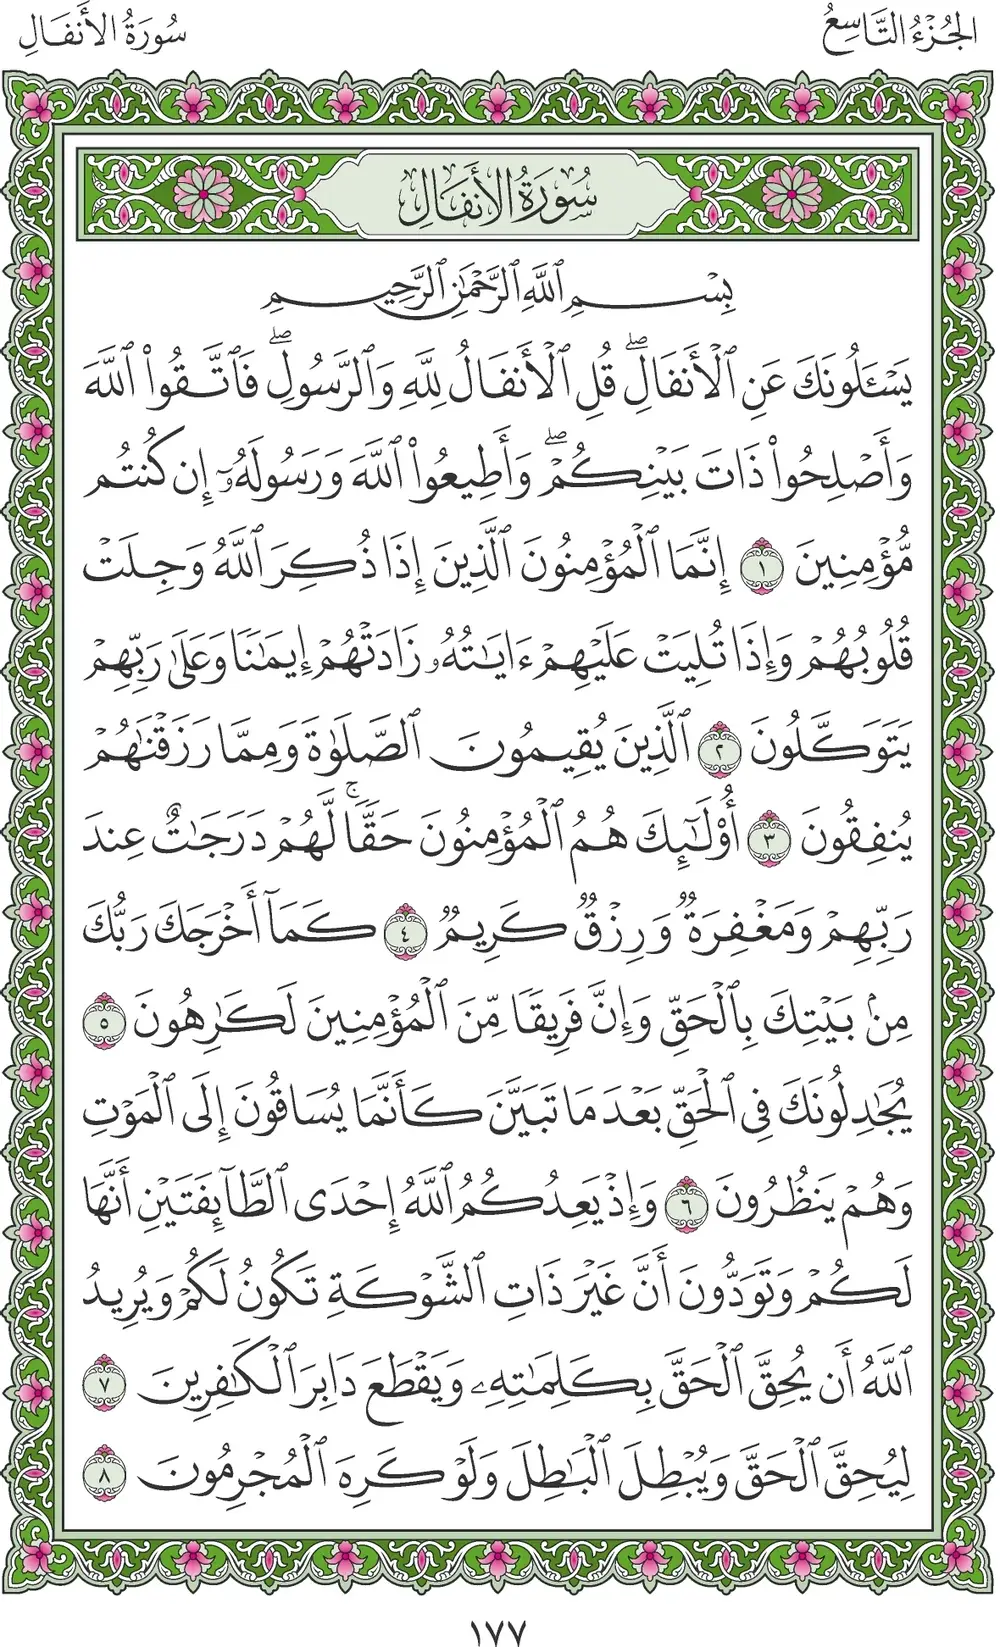 الجُزْءُ التَّاسِعُ
سُورَةُ الأَنفَالِ
سُورَةُ الأَنفَالِ
بِسْمِ ٱللَّهِ ٱلرَّحْمَٰنِ ٱلرَّحِيمِ
يَسْـَٔلُونَكَ عَنِ ٱلْأَنفَالِۖ قُلِ ٱلْأَنفَالُ لِلَّهِ وَٱلرَّسُولِۖ فَٱتَّقُوا۟ ٱللَّهَ
وَأَصْلِحُوا۟ ذَاتَ بَيْنِكُمْۖ وَأَطِيعُوا۟ ٱللَّهَ وَرَسُولَهُۥٓ إِن كُنتُم
مُّؤْمِنِينَ ١ إِنَّمَا ٱلْمُؤْمِنُونَ ٱلَّذِينَ إِذَا ذُكِرَ ٱللَّهُ وَجِلَتْ
قُلُوبُهُمْ وَإِذَا تُلِيَتْ عَلَيْهِمْ ءَايَٰتُهُۥ زَادَتْهُمْ إِيمَٰنًا وَعَلَىٰ رَبِّهِمْ
يَتَوَكَّلُونَ ٢ ٱلَّذِينَ يُقِيمُونَ ٱلصَّلَوٰةَ وَمِمَّا رَزَقْنَٰهُمْ
يُنفِقُونَ ٣ أُو۟لَٰٓئِكَ هُمُ ٱلْمُؤْمِنُونَ حَقًّاۚ لَّهُمْ دَرَجَٰتٌ عِندَ
رَبِّهِمْ وَمَغْفِرَةٌ وَرِزْقٌ كَرِيمٌ ٤ كَمَآ أَخْرَجَكَ رَبُّكَ
مِنۢ بَيْتِكَ بِٱلْحَقِّ وَإِنَّ فَرِيقًا مِّنَ ٱلْمُؤْمِنِينَ لَكَٰرِهُونَ ٥
يُجَٰدِلُونَكَ فِى ٱلْحَقِّ بَعْدَ مَا تَبَيَّنَ كَأَنَّمَا يُسَاقُونَ إِلَى ٱلْمَوْتِ
وَهُمْ يَنظُرُونَ ٦ وَإِذْ يَعِدُكُمُ ٱللَّهُ إِحْدَى ٱلطَّآئِفَتَيْنِ أَنَّهَا
لَكُمْ وَتَوَدُّونَ أَنَّ غَيْرَ ذَاتِ ٱلشَّوْكَةِ تَكُونُ لَكُمْ وَيُرِيدُ
ٱللَّهُ أَن يُحِقَّ ٱلْحَقَّ بِكَلِمَٰتِهِۦ وَيَقْطَعَ دَابِرَ ٱلْكَٰفِرِينَ ٧
لِيُحِقَّ ٱلْحَقَّ وَيُبْطِلَ ٱلْبَٰطِلَ وَلَوْ كَرِهَ ٱلْمُجْرِمُونَ ٨
١٧٧